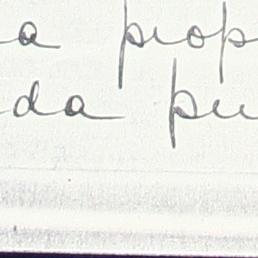 a prop
da pu